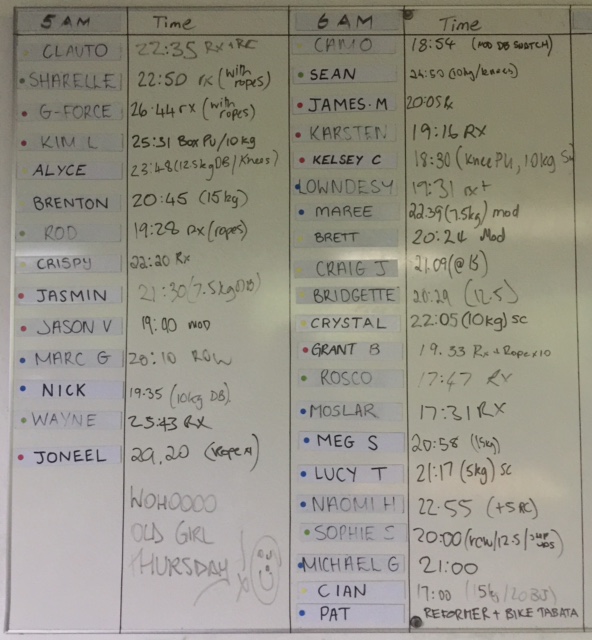 5 AM Time
CLAUTO 22:35 RX + RC
SHARELLE 22:50 rx (with ropes)
G-FORCE 26.44 rx (with ropes)
KIM L 25:31 Box PU/10kg
ALYCE 23:48 (12.5kg DB/Knees)
BRENTON 20:45 (15kg)
ROD 19:28 Rx (ropes)
CRISPY 22:20 Rx
JASMIN 21:30 (7.5kg DB)
JASON V 19:00 MOD
MARC G 20:10 ROW
NICK 19.35 (10kg DB)
WAYNE 25:43 RX
JONEEL 20,20
WOHOOOO
OLD GIRL
THURSDAY
6 AM Time
CAMO 18:54 (MOD DB SNATCH)
SEAN (10kg/knees)
JAMES.M 20:05 Rx
KARSTEN 19:16 RX
KELSEY C 18:30 (Knee PU, 10kg
LOWNDESY 17:31 rx+
MAREE 22:39 (7.5kg) mod
BRETT 20:24 Mod
CRAIG J 21:09 (@15)
BRIDGETTE 20:29 (12.5)
CRYSTAL 22:05 (10kg) SC
GRANT B 19.53 Rx + Rope x10
ROSCO 17:47 RX
MOSLAR 17:31 RX
MEG S 20:58 (15kg)
LUCY T 21:17 (5kg) SC
NAOMI H 22.55 (+5 RC)
SOPHIE S 20:00 (row/12.5/
MICHAEL G 21:00
CIAN 17:00 (15kg/
PAT REFORMER + BIKE TABATA